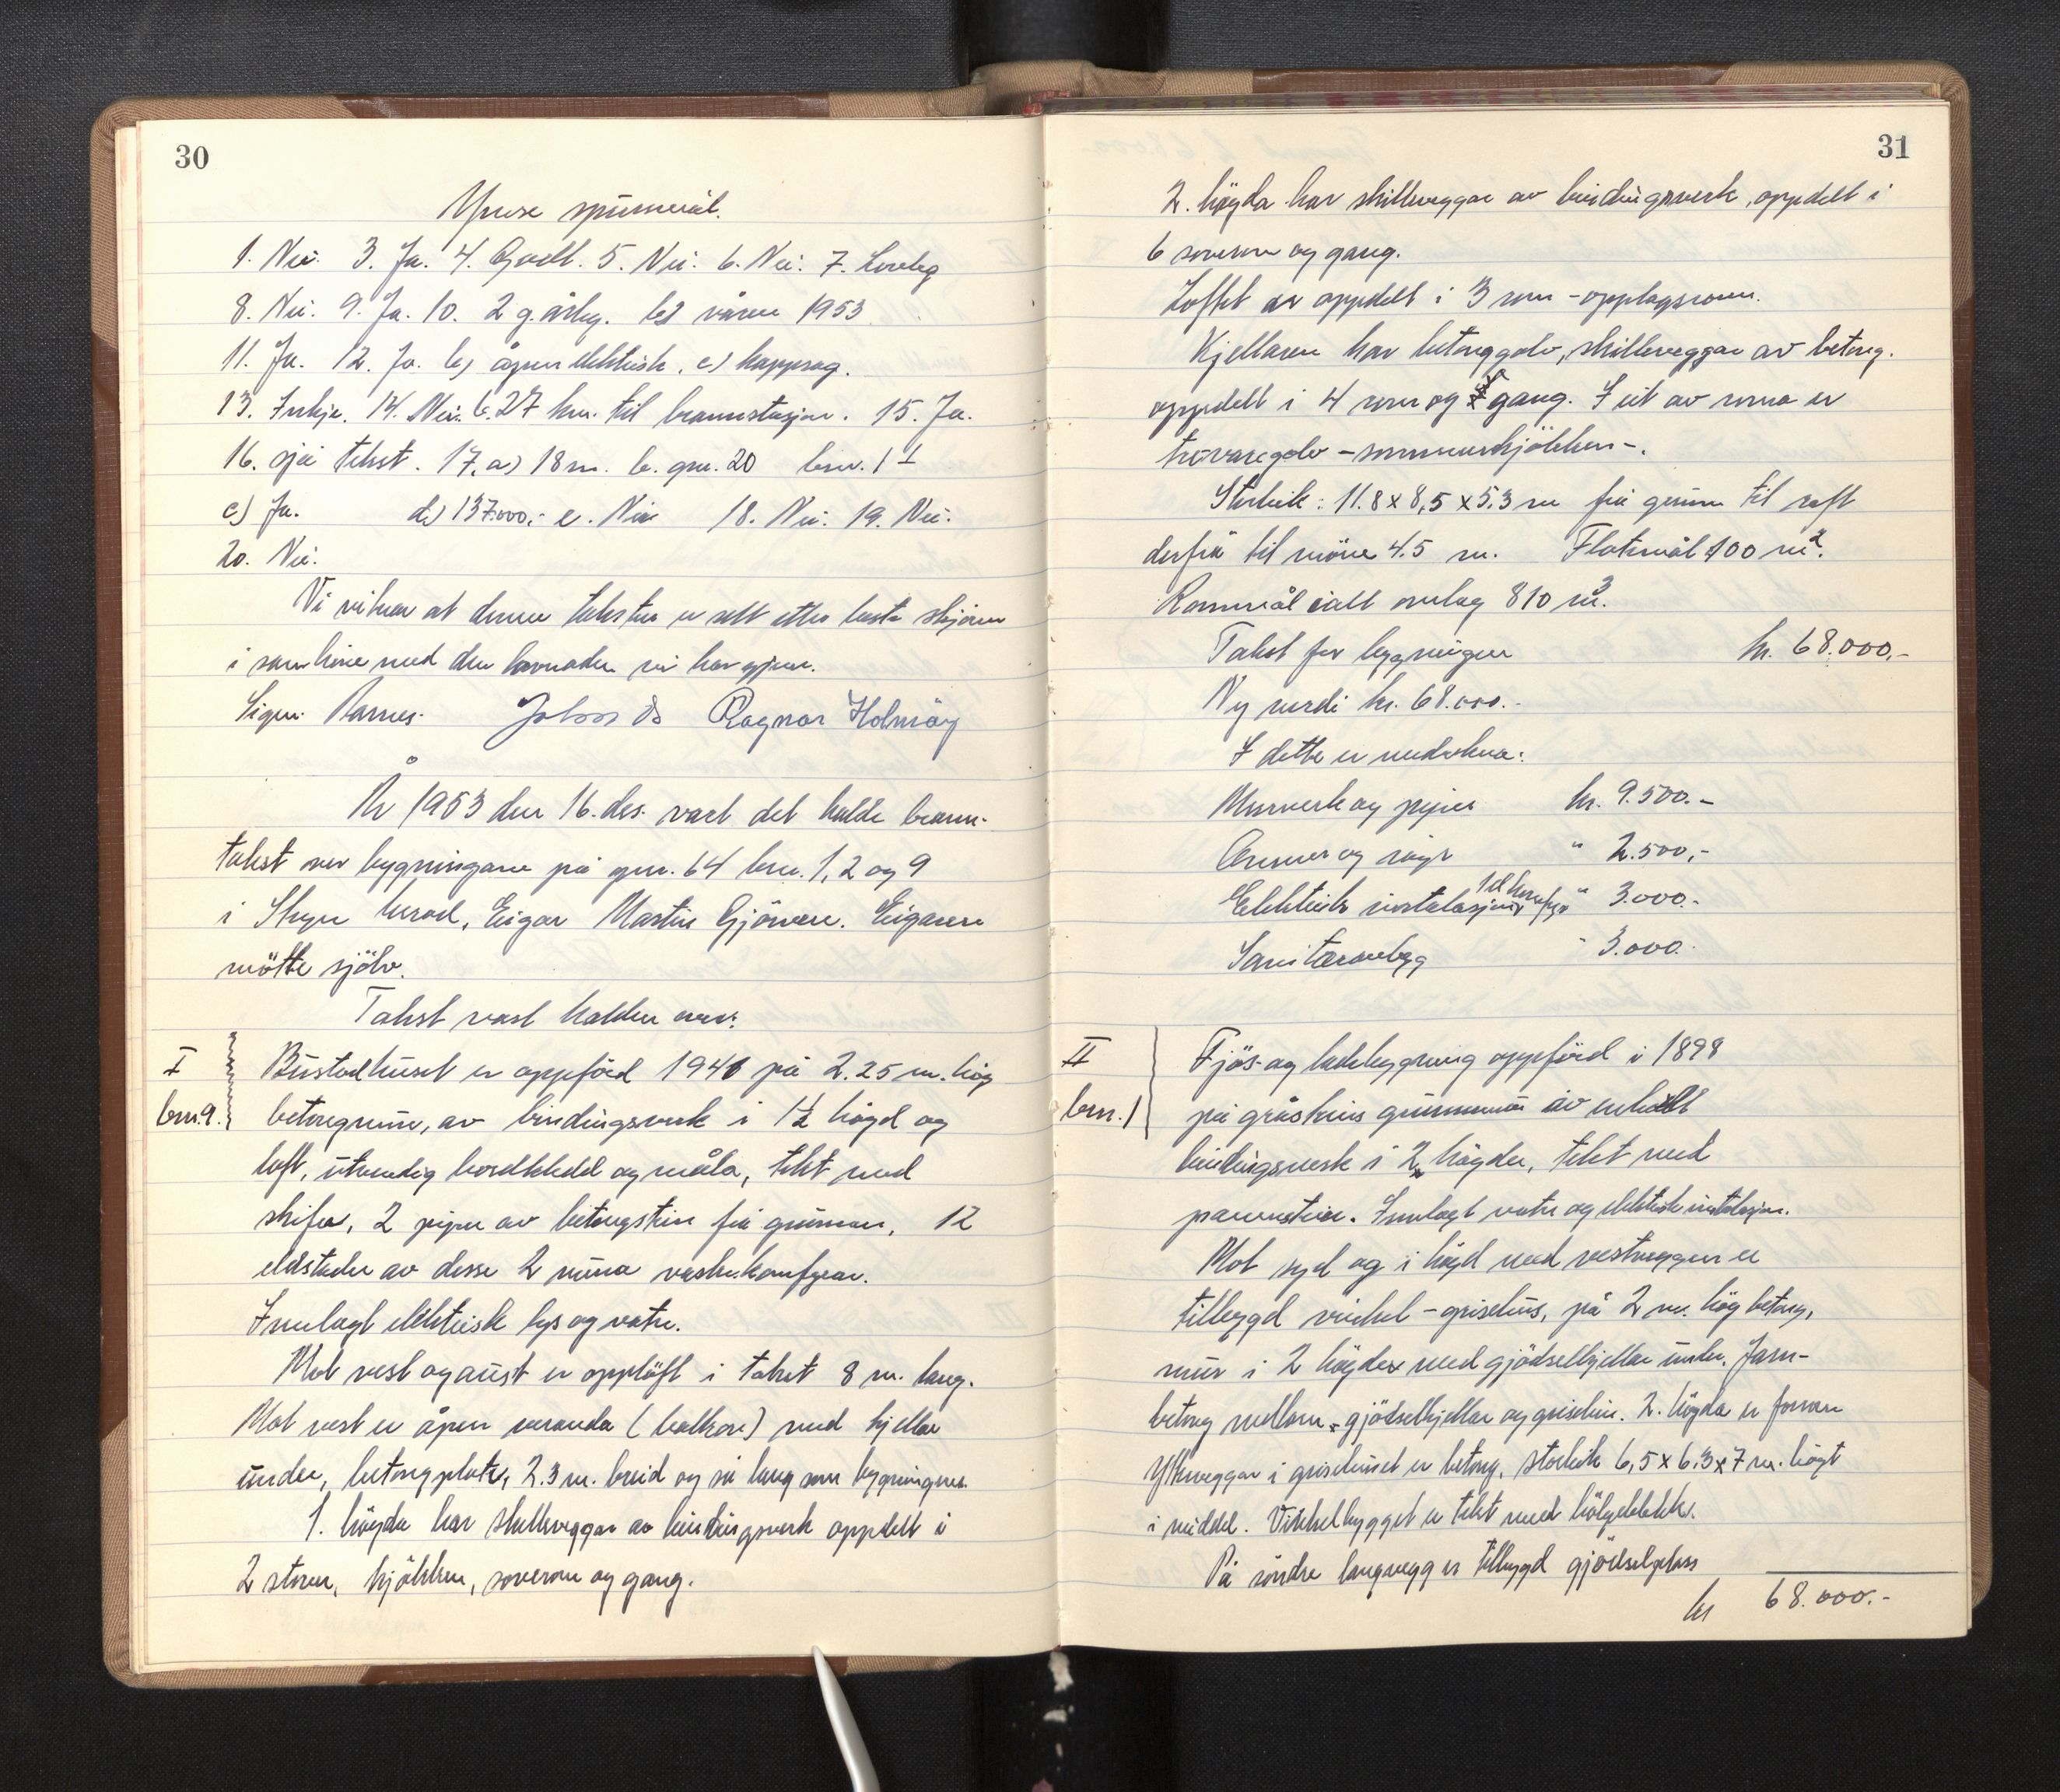 30
Ymse spursmål.
1. Nei. 3. Ja. 4. Godt. 5. Nei. 6. Nei. 7. Loveleg
8. Nei. 9. Ja. 10. 2 g. årleg. b) våren 1953
11. Ja. 12. Ja. b) åpen elektrisk. c) kappsag.
13. Inkje. 14. Nei. b. 27 km. til brannstasjon. 15. Ja.
16. sjå tekst. 17. a) 18 m. b. gnr. 20 bnr. 1
c) Ja. d) 137.000,- e. Nei 18. Nei. 19. Nei.
20. Nei.
Vi vitnar at denne taksten er sett etter beste skjøn
i samhøve med den lovnaden vi har gjeve.
Sign. Rasmus Ragnar Holmøy
År 1953 den 16. des. vart det halde brann-
takst over bygningane på gnr. 64 bnr. 1, 2 og 9
i Stryn herad. Eigar Martin Gjørven. Eigaren
møtte sjølv.
Takst vart halden over:
I Bustadhuset er oppförd 1940 på 2.25 m. høg
bnr. 9. betongmur, av bindingsverk i 1½ høgd og
loft, utvendig bordkledd og måla, tekt med
skifer, 2 piper av betongstein frå grunnen, 12
eldstader av desse 2 mura vaskekomfyrar.
Innlagt elektrisk lys og vatn.
Mot vest og aust er oppløft i taket 8 m. lang.
Mot vest er åpen veranda (balkon) med kjellar
under, betongplate, 2.3 m. breid og så lang som bygningen.
1. høgda har skilleveggar av bindingsverk oppdelt i
2 stover, kjøkken, soverom og gang.
31
2. høgda har skilleveggar av bindingsverk, oppdelt i
6 soverom og gang.
Loftet er oppdelt i 3 rom - opplagsrom.
Kjellaren har betonggolv, skilleveggar av betong.
oppdelt i 4 rom og gang. I eit av roma er
trevaregolv - sommerkjøkken -.
Storleik: 11.8 x 8,5 x 5.3 m frå grunn til raft
derfrå til møne 4.5 m. Flatemål 100 m².
Rommål ialt omlag 810 m³.
Takst for bygningen kr. 68.000,-
Ny verdi kr. 68.000.-
I dette er medrekna:
Murverk og piper kr. 9.500.-
Omner og røyr " 2.500,-
Elektrisk instalasjon 1 el. komfyr " 3.000.-
Sanitæranlegg " 3.000.
II Fjøs- og ladebygning oppförd i 1898
bnr. 1 på gråsteins grunnmur av enkelt
bindingsverk i 2 høgder, tekt med
pannestein. Innlagt vatn og elektrisk instalasjon.
Mot syd og i høgd med vestveggen er
tilbygd vinkel - grisehus, på 2 m. høg betong,
mur i 2 høgder med gjødselkjellar under. Jarn-
betong mellom gjødselkjellar og grisehus. 2. høgda er forrom
Ytterveggar i grisehuset er betong. storleik 6,5 x 6.3 x 7 m. høgt
i middel. Vinkelbygget er tekt med bølgeblekk.
På søndre langvegg er tilbygd gjødselplass
kr 68.000.-